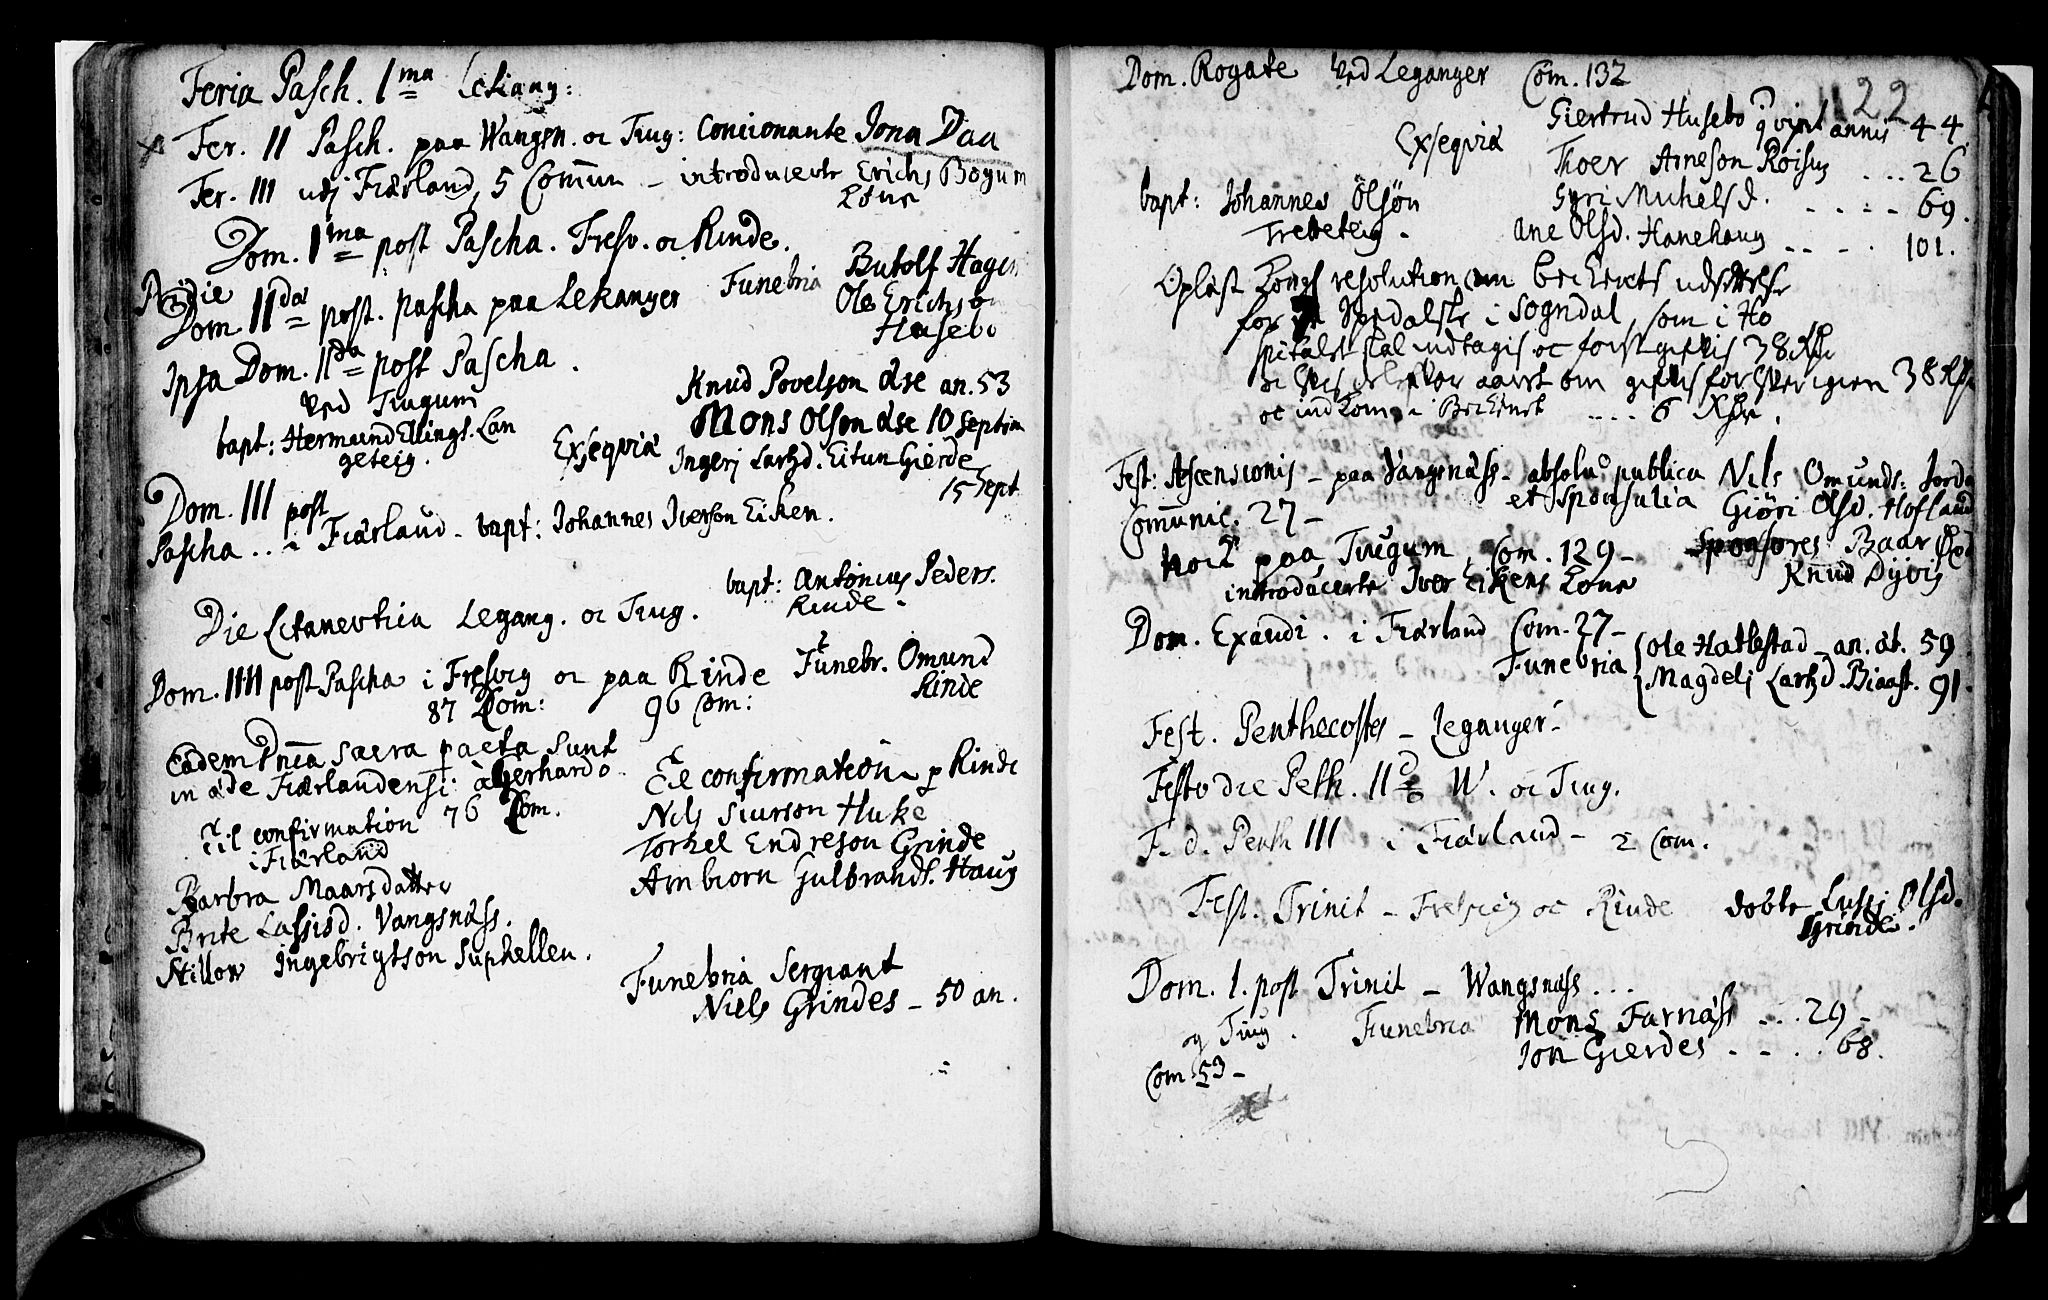 Feria Pasch. 1ma Lekang:
Fer. II Pasch. paa Wangsn. oc Tiug: concionante Jona Daa
Fer. III udj Fiærland, 5 Comun – introducerte Erichs Bøyum
Kone
Dom. 1ma post Pascha. Fresv. oc Rinde.
Pridie
Dom IIda post. Pascha paa Lekanger
Funebria
Butolf Hagen
Ole Erichs
Husebo
Ipsa Dom. IIda post Pascha.
ved Tiugum
bapt: Hermund Ellings. Lan
geteig.
Exseqviæ
Knud Povelson ætæ an. 53
Mons Olson ætæ 10 septim
Ingerj Larsd. Eitungierde
15 sept
Dom. III post
Pascha .. i Fiærland – bapt: Johannes Iverson Eiken.
Die Litaneutica Legang. oc Tiug.
bapt: Antonius Peders.
Rinde.
Dom. IIII post Pascha i Fresvig oc paa Rinde
Funebr. Omund
Rinde
87 Com:
96 Com:
Eadem Dnica sacra pacta sunt
in æde Fiærlandensi à Gerhardo
76 Com.
til confirmation
i Fiærland
Barbra Maarsdatter
Brite Lassisd. Vangsnæss.
Stillow Ingebrigtson Suphellen.
Til confirmation p Rinde
Nils Siurson Huke
Torkel Endreson Grinde
Arnbiorn Gulbrands. Haug
Funebria Sergiant
Niels Grindes – 50 an.
Dom. Rogate ved Leganger Com. 132
122
Exseqviæ
Giertrud Husebo qvixit annis 44
Thoer Arneson Roisug ... 26
Gyri Michelsd. .... 69.
Ane Olsd. Hanehaug .... 101.
bapt: Johannes Olsøn
Tretteteig.
Oplæst Kongl resolution om beckenets udsettelse
for Spedalske i Sogndal, som i Ho
spitalet skal indtagis oc forst gifvis 38 Rdr
38 Rdr
oc indkom i Beckenet .... 6 Rdr.
Fest: Ascensionis – paa Vangsnæss – absolu° publica Nils Omunds: Jorda
et sponsalia Giøri Olsd. Hofland
Comunic. 27 –
hoc paa Tiugum, Com. 129 –
Sponsores Baar
Knud Dyvig
introducerte Iver Eikens Kone
Dom. Exaudi. i Fiærland Com. 27 –
Funebria
Ole Hatlestad – an. æt. 59
Magdeli Larsd. Biaast. 91.
Fest. Penthecostes – Leganger –
Festo die Peth. II W. oc Tiug.
F. d. Penth III i Fiærland – 2 Com.
Fest. Trinit – Fresvig oc Rinde
dobte Lussj Olsd.
Grinde.
Dom. 1. post Trinit – Wangsnæss...
og Tiug.
Funebria
Mons Farnæss ... 29 –
Jon Gierdes .... 68.
Com. 53 –